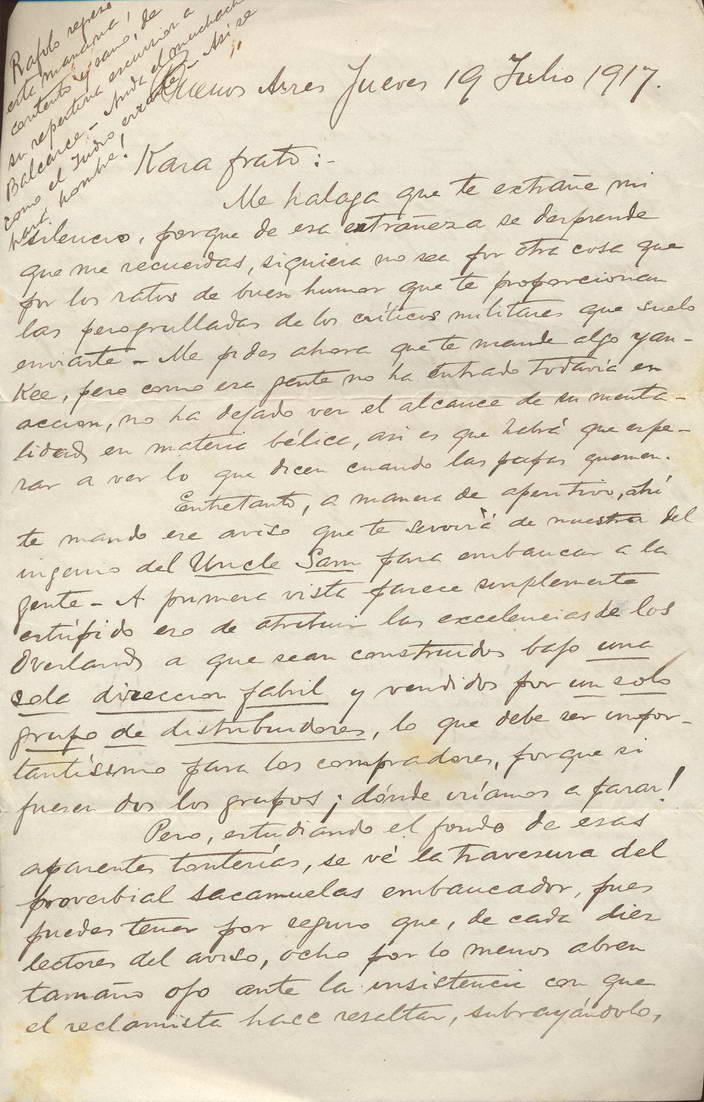 Rafolo regresó
esta mañana,
contento y sano, de
su repentina excursion a
Balcarce – Anda el muchacho
como el Judio errante – Así se
hará hombre!
Buenos Aires Jueves 19 Julio 1917.
Kara frato:-
Me halaga que te extrañe mi
silencio, porque de esa extrañeza se desprende
que me recuerdas, siquiera no sea por otra cosa que
por los ratos de buen humor que te proporcionan
las perogrulladas de los críticos militares que suelo
enviarte – Me pides ahora que te mande algo yan-
kee, pero como esa gente no ha entrado todavía en
accion, no ha dejado ver el alcance de su menta-
lidad en materia bélica, asi es que habrá que espe-
rar a ver lo que dicen cuando las papas quemen.
Entretanto, a manera de aperitivo, ahí
te mando ese aviso que te servirá de muestra del
ingenio del Uncle Sam para embaucar a la
gente – A primera vista parece simplemente
estúpido eso de atribuir las excelencias de los
Overlands a que sean construidos bajo una
sola direccion fabril y vendidos por un solo
grupo de distribuidores, lo que debe ser impor-
tantísimo para los compradores, porque si
fuesen dos los grupos ¡dónde iríamos a parar!
Pero, estudiando el fondo de esas
aparentes tonterías, se vé la travesura del
proverbial sacamuelas embaucador, pues
puedes tener por seguro que, de cada diez
lectores del aviso, ocho por lo menos abren
tamaño ojo ante la insistencia con que
el reclamista hace resaltar, subrayándolo,